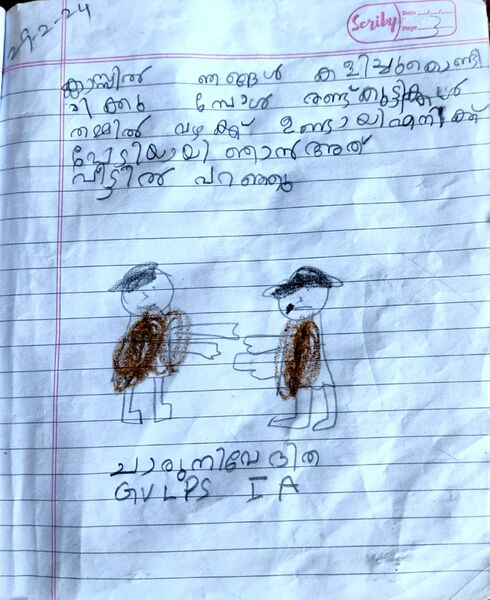 29-2-24
Scriby
Date
Page 3
ക്ലാസ്സിൽ ഞങ്ങൾ കളിച്ചുകൊണ്ടി
രിക്കു മ്പോൾ രണ്ട് കുട്ടികൾ
തമ്മിൽ വഴക്ക് ഉണ്ടായി എനിക്ക്
പേടിയായി ഞാൻ അത്
വീട്ടിൽ പറഞ്ഞു
ചാരുനിവേദിത
GVLPS I A